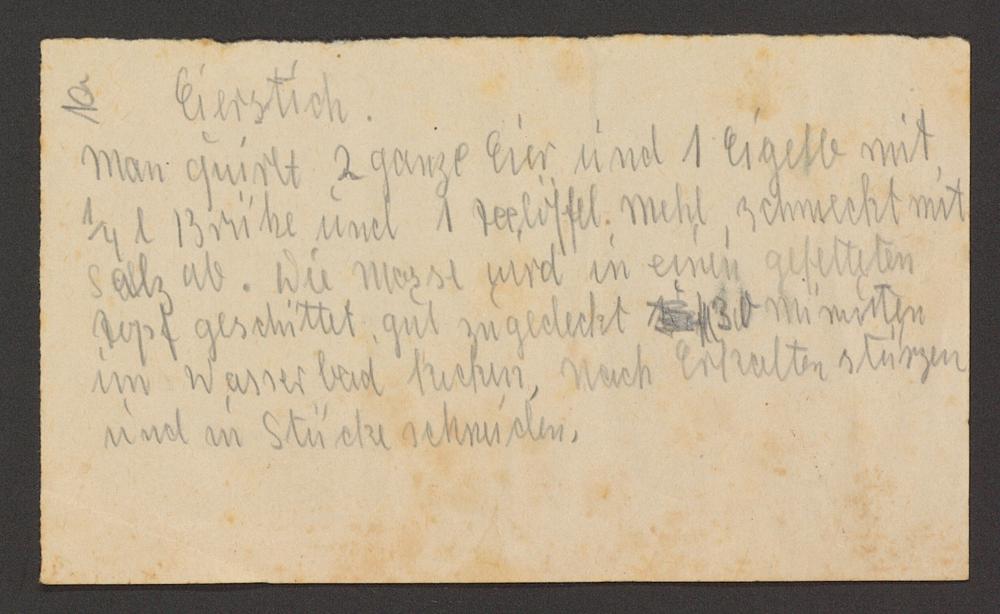 Eierstich.
Man quirlt 2 ganze Eier und 1 Eigelb mit
1/4 l Brühe und 1 Teelöffel. Mehl, schmeckt mit
Salz ab. Die Masse wird in einen gefetteten
Topf geschüttet, gut zugedeckt 30 Minuten
im Wasserbad kochen, nach Erkalten stürzen
und in Stücke schneiden.